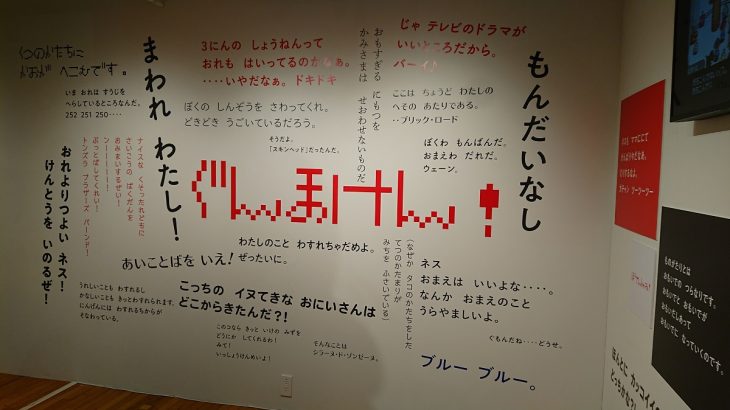 くつのかたちに
かおが へこむです。
いま おれは すうじを
へらしているところなんだ。
252 251 250‥‥
まわれ わたし！
3にんの しょうねんって
おれも はいってるのかなぁ。
‥‥いやだなぁ。ドキドキ
ぼくの しんぞうを さわってくれ。
どきどき うごいているだろう。
そうだよ。
「スキンヘッド」だったんだ。
おもすぎる にもつを
かみさまは せおわせないものだ
じゃ テレビのドラマが
いいところだから。
バーイ♪
ここは ちょうど わたしの
へその あたりである。
‥ブリック・ロード
ぼくわ もんばんだ。
おまえわ だれだ。
ウェーン。
もんだいなし
ナイスな くそったれどもに
さいこうの ばくだんを
おみまいするぜい！
ンーーーーーー！
ぶっとばしてくれい！
トンズラ ブラザーズ バーンド！
おれよりつよい ネス！
けんとうを いのるぜ！
ぐんまけん！
わたしのこと わすれちゃだめよ。
ぜったいに。
あいことばを いえ！
（なぜか タコのかたちをした
てつのかたまりが
みちを ふさいでいる）
ネス
おまえは いいよな‥‥。
なんか おまえのこと
うらやましいよ。
ぐもんだね‥‥どうせ。
うれしいことも わすれるし
かなしいことも きっとわすれられます。
にんげんには わすれるちからが
そなわっている。
こっちの イヌてきな おにいさんは
どこからきたんだ?!
このコなら きっと いけの みずを
どうにか してくれるわ！
みて！
いっしょうけんめいよ！
そんなことは
シラーヌ・ド・ゾンゼーヌ。
ブルー ブルー。
ものがたりとは
おもいでの つらなりです。
おもいでと おもいでが
おもいだしあって
おもいでに なっていくのです。
ほんとに カッコイイ
どっちかな？